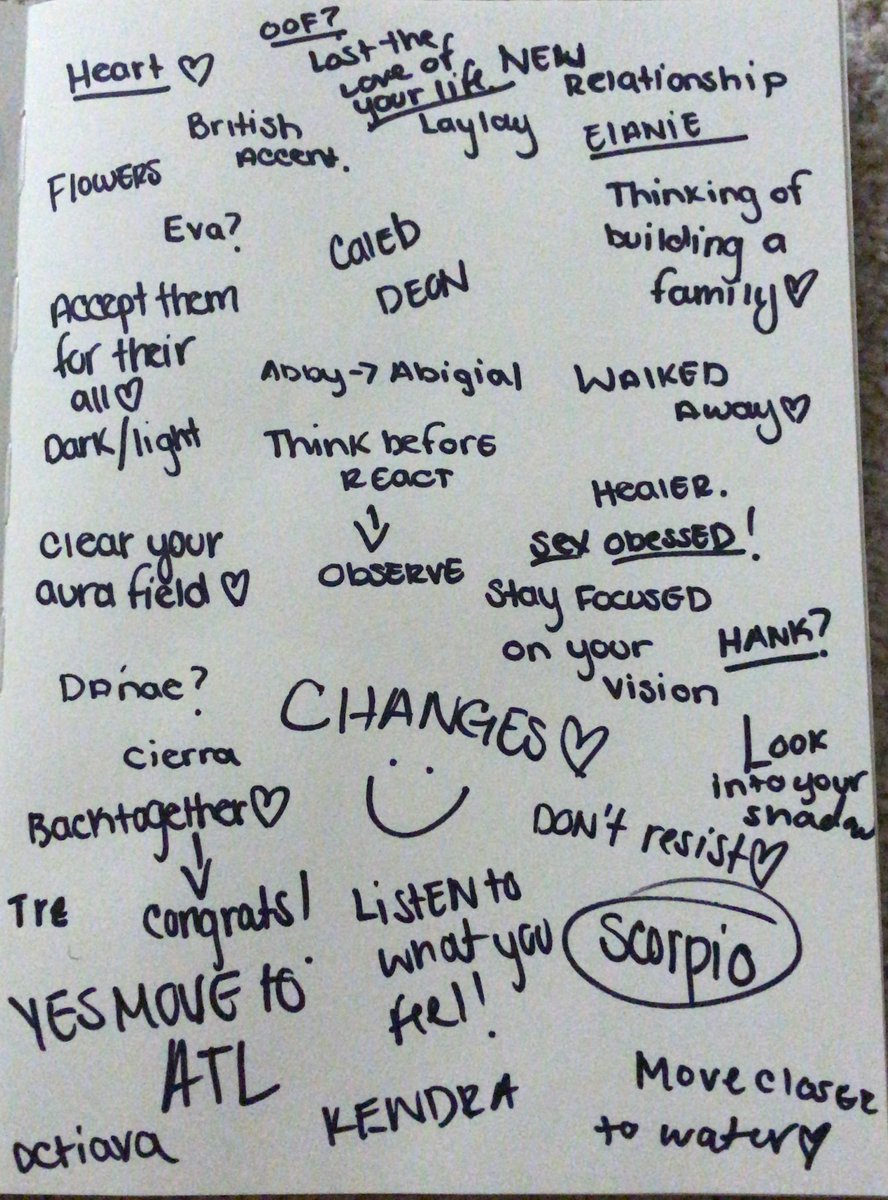 Heart ♡
OOF?
Lost the
love of
your life.
NEW
Relationship
British
Accent.
Laylay
ElANiE
FlOWERS
Eva?
Caleb
DEON
Thinking of
building a
family ♡
Accept them
for their
all ♡
Dark/light
Abby -> Abigial
WAlKED
Away ♡
Think before
REACT
↓
OBSERVE
HealER.
Sex obessED!
clear your
aura field ♡
Stay FOCUSED
on your
vision
HANK?
Danae?
cierra
CHANGES ♡
Look
into your
shadow
Backtogether ♡
↓
congrats!
DON't resist ♡
Tre
ListEN to
what you
feel!
Scorpio
YES MOVE to
ATL
KENDRA
Move closER
to water ♡
Octiava